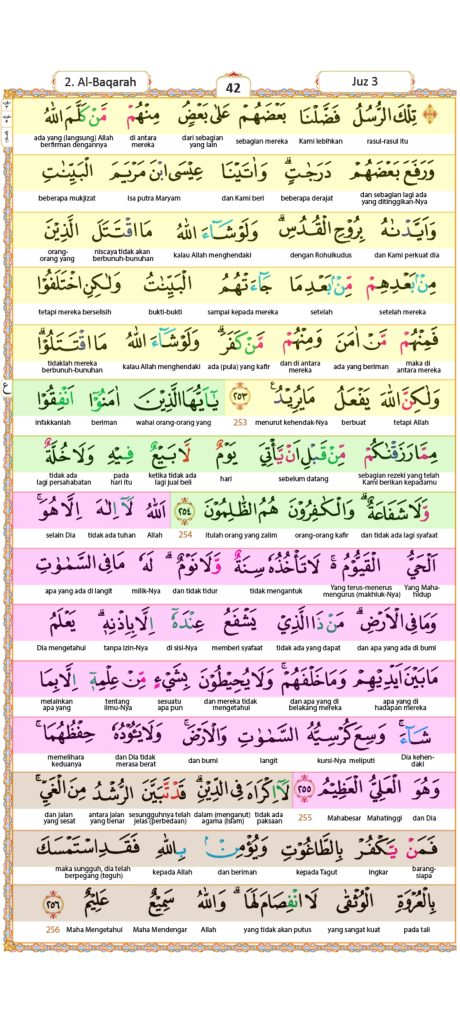 2. Al-Baqarah
42
Juz 3
تِلْكَ الرُّسُلُ فَضَّلْنَا بَعْضَهُمْ عَلٰى بَعْضٍۘ مِنْهُمْ مَّنْ كَلَّمَ اللّٰهُ
rasul-rasul itu Kami lebihkan sebagian mereka dari sebagian yang lain di antara mereka ada yang (langsung) Allah berfirman dengannya
وَرَفَعَ بَعْضَهُمْ دَرَجٰتٍۗ وَاٰتَيْنَا عِيْسَى ابْنَ مَرْيَمَ الْبَيِّنٰتِ
dan sebagian lagi ada yang ditinggikan-Nya beberapa derajat dan Kami beri Isa putra Maryam beberapa mukjizat
وَاَيَّدْنٰهُ بِرُوْحِ الْقُدُسِۗ وَلَوْ شَاۤءَ اللّٰهُ مَا اقْتَتَلَ الَّذِيْنَ
dan Kami perkuat dia dengan Rohulkudus kalau Allah menghendaki niscaya tidak akan berbunuh-bunuhan orang-orang yang
مِنْۢ بَعْدِهِمْ مِّنْۢ بَعْدِ مَا جَاۤءَتْهُمُ الْبَيِّنٰتُ وَلٰكِنِ اخْتَلَفُوْا
setelah mereka setelah sampai kepada mereka bukti-bukti tetapi mereka berselisih
فَمِنْهُمْ مَّنْ اٰمَنَ وَمِنْهُمْ مَّنْ كَفَرَۗ وَلَوْ شَاۤءَ اللّٰهُ مَا اقْتَتَلُوْاۗ
maka di antara mereka ada yang beriman dan di antara mereka ada (pula) yang kafir kalau Allah menghendaki tidaklah mereka berbunuh-bunuhan
وَلٰكِنَّ اللّٰهَ يَفْعَلُ مَا يُرِيْدُ ࣖ ٢٥٣ يٰٓاَيُّهَا الَّذِيْنَ اٰمَنُوْٓا اَنْفِقُوْا
tetapi Allah berbuat menurut kehendak-Nya 253 wahai orang-orang yang beriman infakkanlah
ع
مِمَّا رَزَقْنٰكُمْ مِّنْ قَبْلِ اَنْ يَّأْتِيَ يَوْمٌ لَّا بَيْعٌ فِيْهِ وَلَا خُلَّةٌ
sebagian rezeki yang telah Kami berikan kepadamu sebelum datang hari ketika tidak ada lagi jual beli pada hari itu tidak ada lagi persahabatan
وَّلَا شَفَاعَةٌۗ وَالْكٰفِرُوْنَ هُمُ الظّٰلِمُوْنَ ٢٥٤ اَللّٰهُ لَآ اِلٰهَ اِلَّا هُوَۚ
dan tidak ada lagi syafaat orang-orang kafir itulah orang yang zalim 254 Allah tidak ada tuhan selain Dia
اَلْحَيُّ الْقَيُّوْمُ ەۚ لَا تَأْخُذُهٗ سِنَةٌ وَّلَا نَوْمٌۗ لَهٗ مَا فِى السَّمٰوٰتِ
Yang Maha-hidup Yang terus-menerus mengurus (makhluk-Nya) tidak mengantuk dan tidak tidur milik-Nya apa yang ada di langit
وَمَا فِى الْاَرْضِۗ مَنْ ذَا الَّذِيْ يَشْفَعُ عِنْدَهٗٓ اِلَّا بِاِذْنِهٖۗ يَعْلَمُ
dan apa yang ada di bumi tidak ada yang dapat memberi syafaat di sisi-Nya tanpa izin-Nya Dia mengetahui
مَا بَيْنَ اَيْدِيْهِمْ وَمَا خَلْفَهُمْۚ وَلَا يُحِيْطُوْنَ بِشَيْءٍ مِّنْ عِلْمِهٖٓ اِلَّا بِمَا
apa yang di hadapan mereka dan apa yang di belakang mereka dan mereka tidak mengetahui sesuatu apa pun tentang ilmu-Nya melainkan apa yang
شَاۤءَۚ وَسِعَ كُرْسِيُّهُ السَّمٰوٰتِ وَالْاَرْضَۚ وَلَا يَـُٔوْدُهٗ حِفْظُهُمَاۚ
Dia kehen-daki kursi-Nya meliputi langit dan bumi dan Dia tidak merasa berat memelihara keduanya
وَهُوَ الْعَلِيُّ الْعَظِيْمُ ٢٥٥ لَآ اِكْرَاهَ فِى الدِّيْنِۗ قَدْ تَّبَيَّنَ الرُّشْدُ مِنَ الْغَيِّۚ
dan Dia Mahatinggi Mahabesar 255 tidak ada paksaan dalam (menganut) agama (Islam) sesungguhnya telah jelas (perbedaan) antara jalan yang benar dan jalan yang sesat
فَمَنْ يَّكْفُرْ بِالطَّاغُوْتِ وَيُؤْمِنْۢ بِاللّٰهِ فَقَدِ اسْتَمْسَكَ
barang-siapa ingkar kepada Tagut dan beriman kepada Allah maka sungguh, dia telah berpegang (teguh)
بِالْعُرْوَةِ الْوُثْقٰى لَا انْفِصَامَ لَهَاۗ وَاللّٰهُ سَمِيْعٌ عَلِيْمٌ ٢٥٦
pada tali yang sangat kuat yang tidak akan putus Allah Maha Mendengar Maha Mengetahui 256